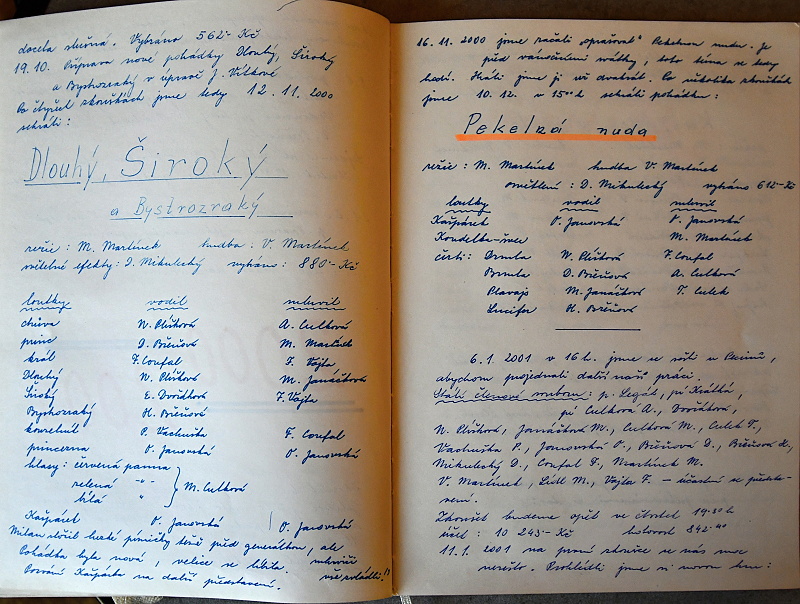 docela slušná. Vybráno 562- Kč
19.10. Příprava nové pohádky Dlouhý, Široký
a Bystrozraký v úpravě J. Vítkové
Po čtyřech zkouškách jsme tedy 12.11.2000
sehráli:
Dlouhý, Široký
a Bystrozraký
režie: M. Martínek hudba: V. Martínek
světelné efekty: D. Mikulecký vybráno: 880- Kč
loutky vodil mluvil
chůva N. Plíšková A. Culková
princ D. Bičeňová M. Martínek
král F. Coufal F. Vojta
Dlouhý N. Plíšková M. Janáčková
Široký E. Dvořáková F. Vojta
Bystrozraký H. Bičeňová
kouzelník P. Vachuška F. Coufal
princezna O. Janovská O. Janovská
hlasy: červená panna
zelená -"-
bílá " M. Culková
Kašpárek O. Janovská O. Janovská
Milan složil hezké písničky těsně před generálkou, ale
Pohádka byla nová, velice se líbila. mluviči
Pozvání Kašpárka na další představení. vše zvládli!
16.11.2000 jsme začali "oprašovat" Pekelnou nudu. Je
před vánočními svátky, toto téma se tedy
hodí. Hráli jsme ji už dvakrát. Po několika zkouškách
jsme 10.12. v 15 00 h sehráli pohádku:
Pekelná nuda
režie: M. Martínek hudba V. Martínek
osvětlení: D. Mikulecký vybráno 612- Kč
loutky vodil mluvil
Kašpárek O. Janovská O. Janovská
Koudelka-švec M. Martínek
čerti: Drnula N. Plíšková F. Coufal
Brnula D. Bičeňová A. Culková
Plavajs M. Janáčková T. Culek
Lucifer H. Bičeňová
6.1.2001 v 16 h. jsme se sešli u
abychom projednali další naši práci.
Stálí členové souboru: p. Legát, pí Krátká,
pí Culková A., Dvořáková,
N. Plíšková, Janáčková M., Culková M., Culek T.,
Vachuška P., Janovská O., Bičeňová D., Bičeňová H.,
Mikulecký D., Coufal F., Martínek M.
V. Martínek, Lédl M., Vojta F. – účastní se představení.
Zkoušet budeme opět ve čtvrtek 19 30 h
účet: 10 245- Kč hotovost 842 40
11.1.2001 na první zkoušce se nás moc
nesešlo. Prohlédli jsme si novou hru: